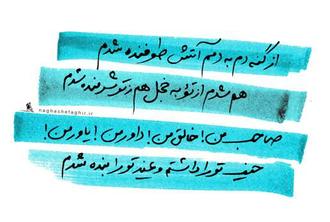 از گنه دم به دمم آتش طوفنده شدم
هم شدم از تو به خجل هم ز تو شرمنده شدم
naghashetaghir.ir
صاحب من! خالق من! داور من! یاور من!
حیف تو را داشته و عبد تو را بنده شدم